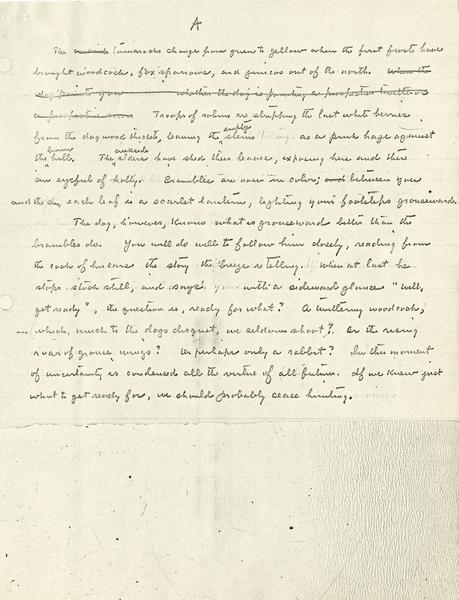 A
The tamaracks change from green to yellow when the first frosts have
brought woodcock, fox sparrows, and juncos out of the north. When the
dog points you whether the dog is pointing a prospective
a prospective
Troops of robins are stripping the last white berries
from the dogwood thickets, leaving the empty stems as a pink haze against
the hill. The alders have shed their leaves, exposing here and there
an eyeful of holly. Brambles are now in color; and between you
and the sun each leaf is a scarlet lantern, lighting your footsteps grouseward.
The dog, however, knows what is grouseward better than the
brambles do. You will do well to follow him closely, reading from
the cock of his ears the story the breeze is telling. When at last he
stops stock still, and says with a sideward glance "well,
get ready", the question is, ready for what? A twittering woodcock,
which, much to the dogs disgust, we seldom shoot? Or the rising
roar of grouse wings? Or perhaps only a rabbit? In this moment
of uncertainty is condensed all the virtue of all
If we knew just
what to get ready for, we should probably cease hunting.